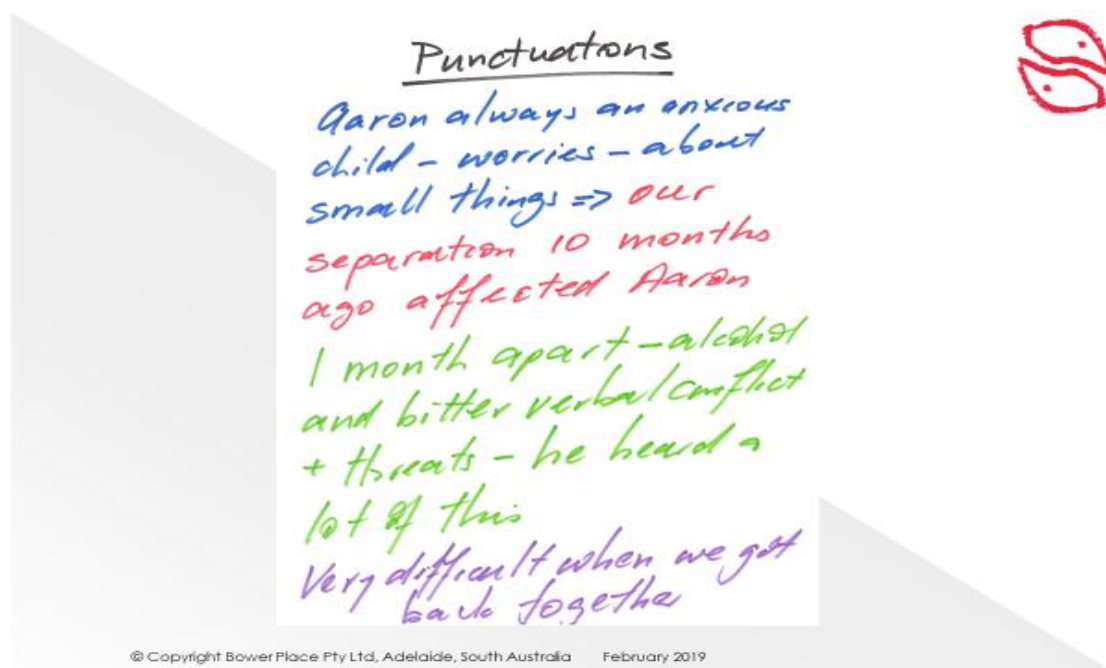 Punctuations
Aaron always an anxious
child – worries – about
small things => our
separation 10 months
ago affected Aaron
1 month apart – alcohol
and bitter verbal conflict
+ threats – he heard a
lot of this
Very difficult when we got
back together
© Copyright Bower Place Pty Ltd, Adelaide, South Australia February 2019